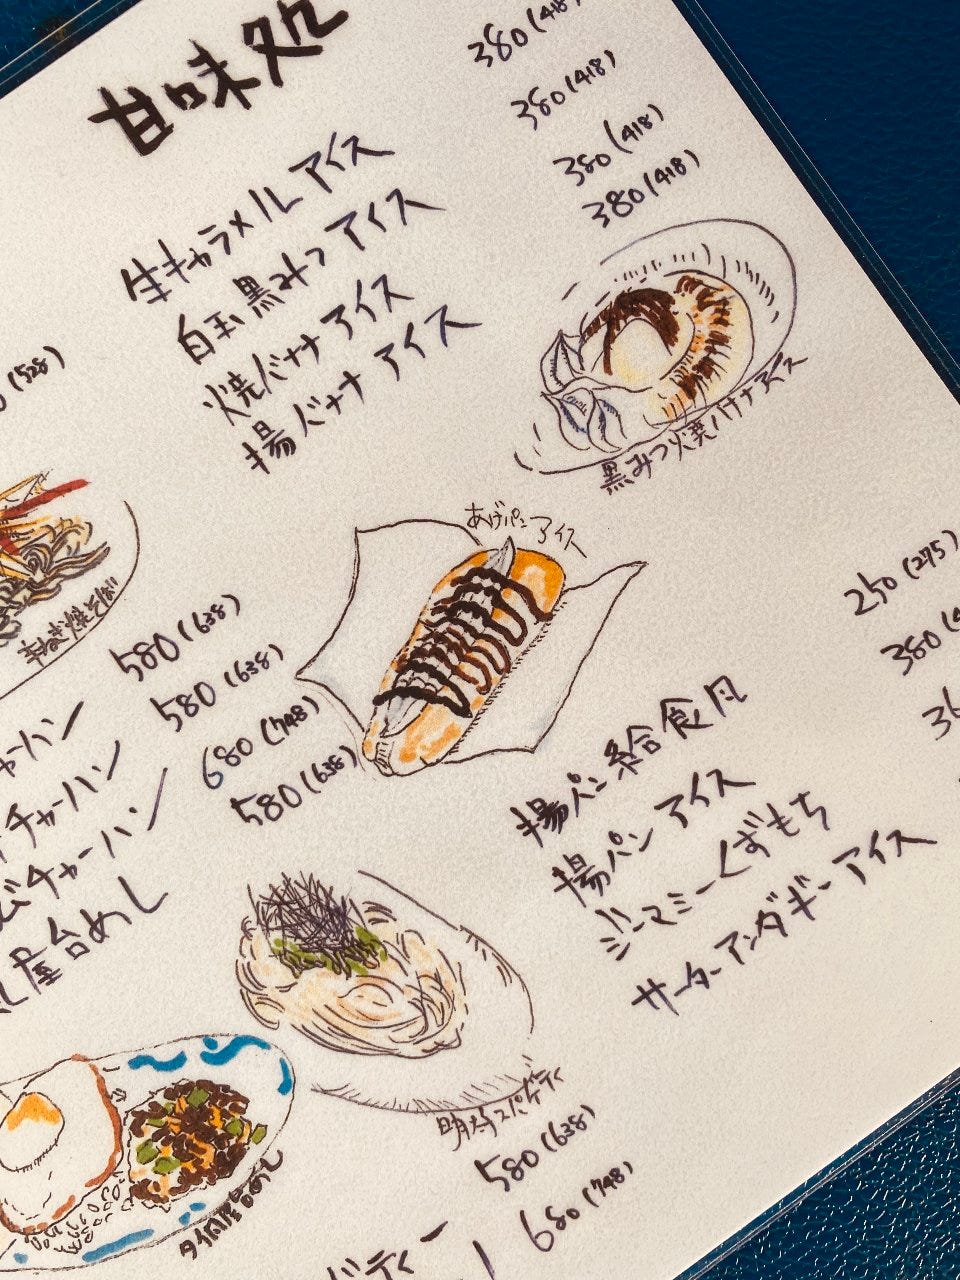 甘味処
生キャラメルアイス 380(418)
白玉黒みつアイス 380(418)
焼バナナアイス 380(418)
揚バナナアイス 380(418)
黒みつ焼バナナアイス
(528)
辛ねぎ焼そば
あげパンアイス
580(638)
チャーハン 580(638)
チャーハン 680(748)
チャーハン 580(638)
屋台めし
揚パン給食風 250(275)
揚パンアイス 380
ジーマミーくずもち
サーターアンダギーアイス
明太スパゲティ
580(638)
680(748)